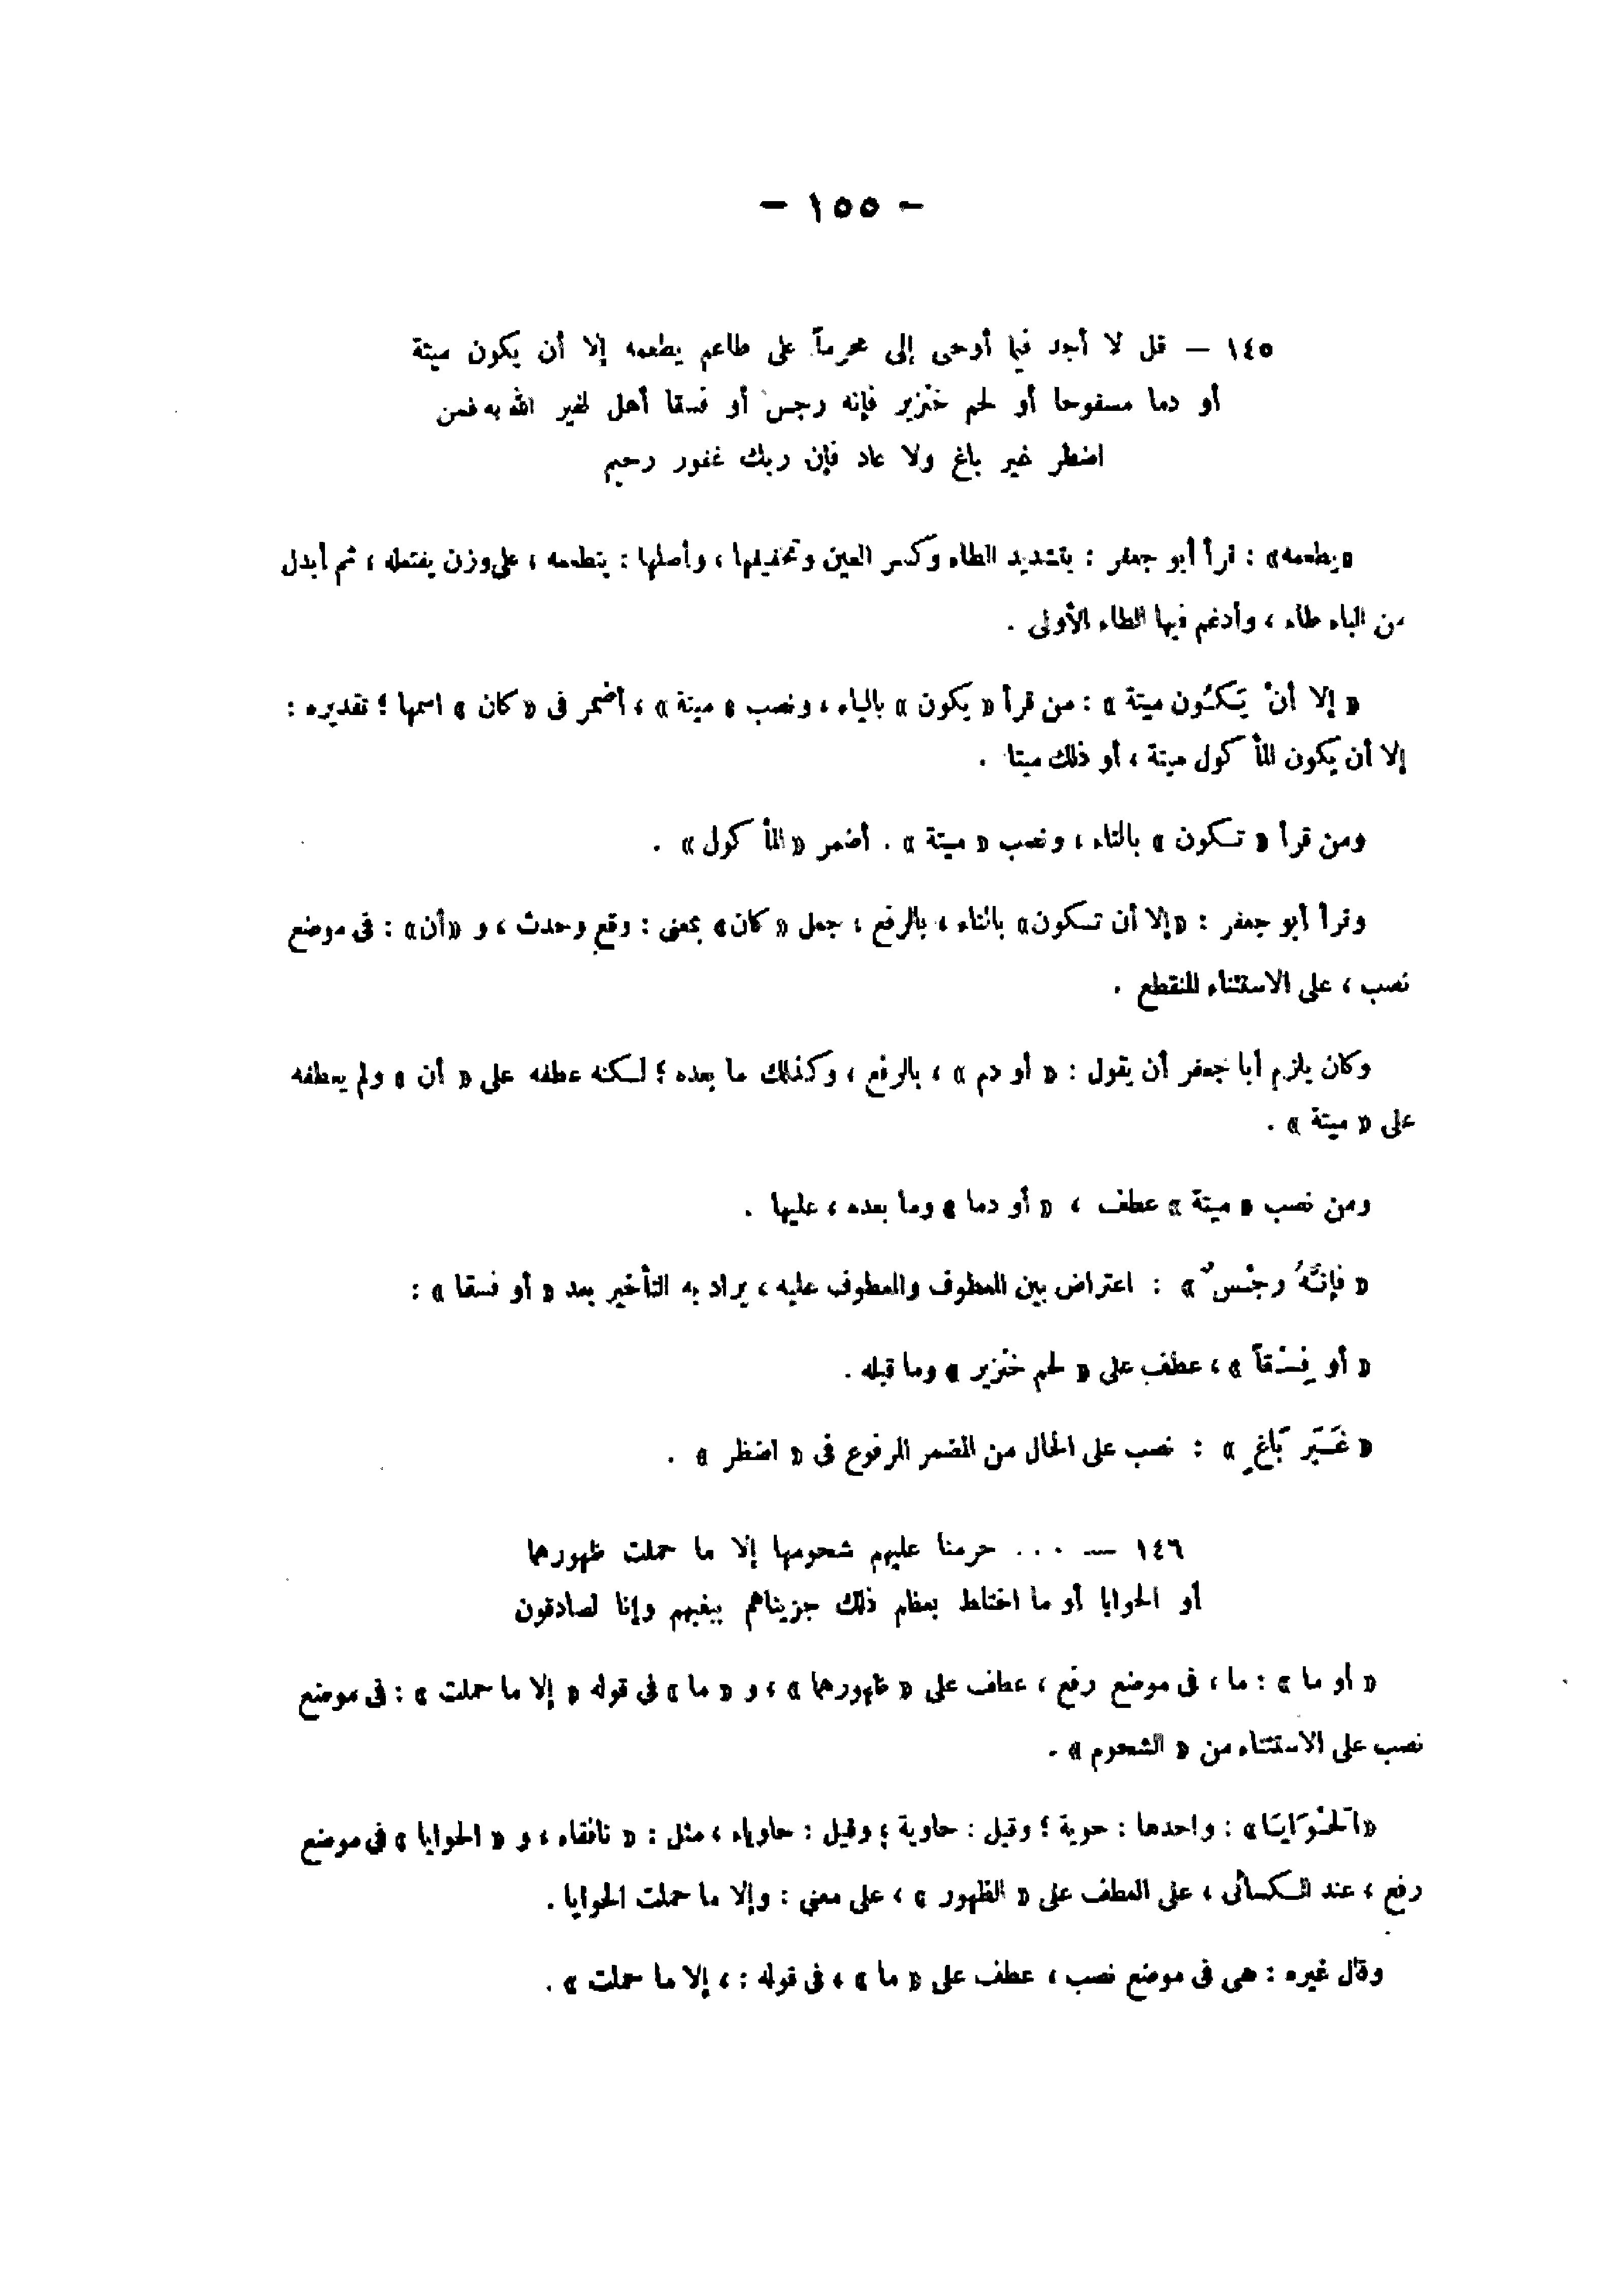 – ١٥٥ –
١٤٥ – قل لا أجد فيما أوحى إلى محرماً على طاعم يطعمه إلا أن يكون ميتة
أو دما مسفوحا أو لحم خنزير فإنه رجس أو فسقا أهل لغير الله به فمن
اضطر غير باغ ولا عاد فإن ربك غفور رحيم
«يطعمه» : قرأ أبو جعفر : بتشديد الطاء وكسر العين وتخفيفها ، وأصلها : يتطعمه ، على وزن يفتعله ، ثم أبدل
من التاء طاء ، وأدغم فيها الطاء الأولى .
« إلا أنْ يَكُون ميتة » : من قرأ « يكون » بالياء ، ونصب « ميتة » ، أضمر فى « كان » اسمها ؛ تقديره :
إلا أن يكون المأكول ميتة ، أو ذلك ميتا .
ومن قرأ « تكون » بالتاء ، ونصب « ميتة » . أضمر « المأكول » .
وقرأ أبو جعفر : «إلا أن تكون» بالتاء ، بالرفع ، جعل « كان» بمعنى : وقع وحدث ، و «أن» : فى موضع
نصب ، على الاستثناء المنقطع .
وكان يلزم أبا جعفر أن يقول : « أو دم » ، بالرفع ، وكذلك ما بعده ؛ لكنه عطفه على « أن » ولم يعطفه
على « ميتة » .
ومن نصب « ميتة » عطف ، « أو دما » وما بعده ، عليها .
« فإنَّهُ رجْسٌ » : اعتراض بين المعطوف والمعطوف عليه ، يراد به التأخير بعد « أو فسقا » :
« أو فِسْقاً » ، عطف على « لحم خنزير » وما قبله .
« غَيَر بَاغٍ » : نصب على الحال من المضمر المرفوع فى « اضطر » .
١٤٦ — ... حرمنا عليهم شحومها إلا ما حملت ظهورهما
أو الحوايا أو ما اختلط بعظم ذلك جزيناهم ببغيهم وإنا لصادقون
« أو ما » : ما ، فى موضع رفع ، عطف على « ظهورهما » ، و « ما » فى قوله « إلا ما حملت » : فى موضع
نصب على الاستثناء من « الشحوم » .
«اَلْحَوَايَا» : واحدها : حوية ؛ وقيل : حاوية ؛ وقيل : حاوياء ، مثل : « نافقاء ، و « الحوايا » فى موضع
رفع ، عند الكسائى ، على العطف على « الظهور » ، على معنى : وإلا ما حملت الحوايا .
وقال غيره : هى فى موضع نصب ، عطف على « ما » ، فى قوله : ، إلا ما حملت » .